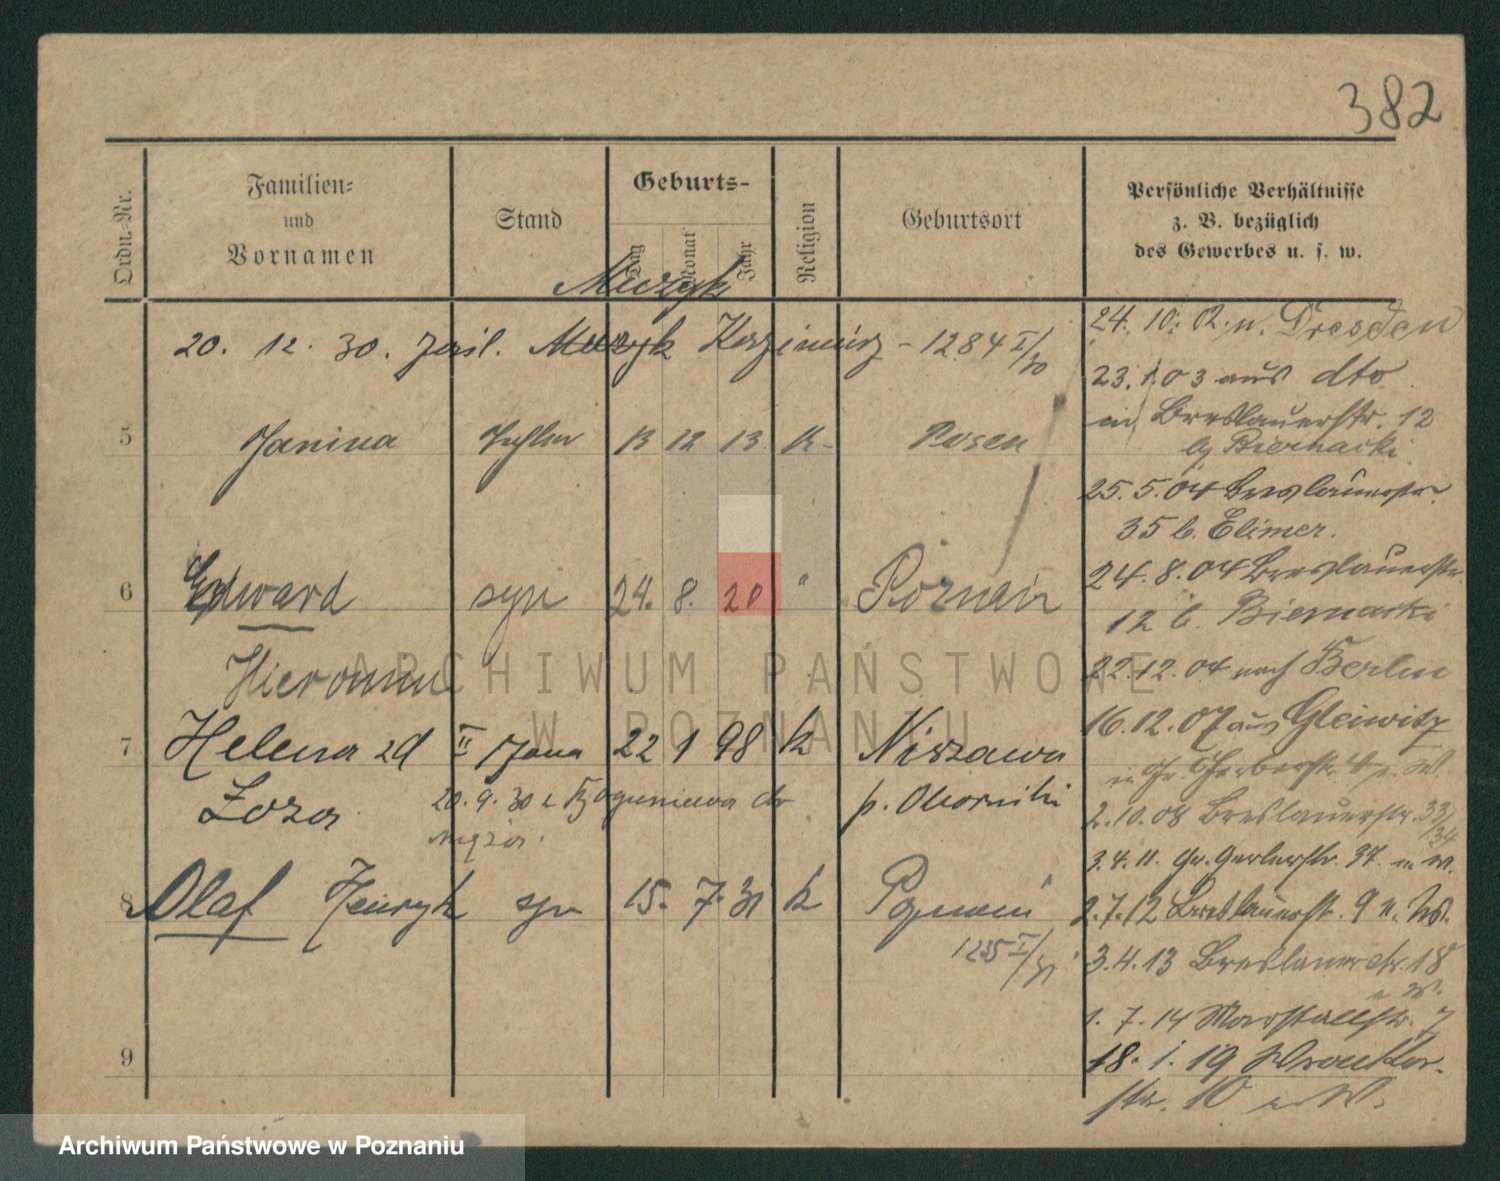 382
Ordn.-Nr.
Familien-
und
Vornamen
Stand
Geburts-
Tag
Monat
Jahr
Religion
Geburtsort
Persönliche Verhältnisse
z. B. bezüglich
des Gewerbes u. s. w.
20. 12. 30. Kazimierz - 1284 I/30
5 Janina 13 12 13 K. Posen
6 Edward syn 24. 8. 20 " Poznań
Hieronim
7 Helena zd II żona 22 1 98 k Niszawa
20. 9. 30 z do p. Oborniki
męża.
8 Olaf Henryk syn 15. 7. 31 k Poznań
1235 I/31
9
24. 10. 02. n. Dresden
23. 1. 03 aus dto
in Breslauerstr. 12
b/ Biernacki
25. 5. 04 Breslauerstr.
35 b. Elimer.
24. 8. 04 Breslauerstr.
12 b. Biernacki
22. 12. 04 nach Berlin
16. 02. 07 aus Gleiwitz
in Gr. Gerberstr. 4 e. W.
2. 10. 08 Breslauerstr. 33/34
3. 4. 11. Gr. Gerberstr. 37. e. W.
2. 7. 12 Breslauerstr. 9 e. W.
3. 4. 13 Breslauerstr. 18
e. W.
1. 7. 14 Marstallstr. 7
18. 1. 19 Wronker-
str. 10 e. W.
ARCHIWUM PAŃSTWOWE
W POZNANIU
Archiwum Państwowe w Poznaniu